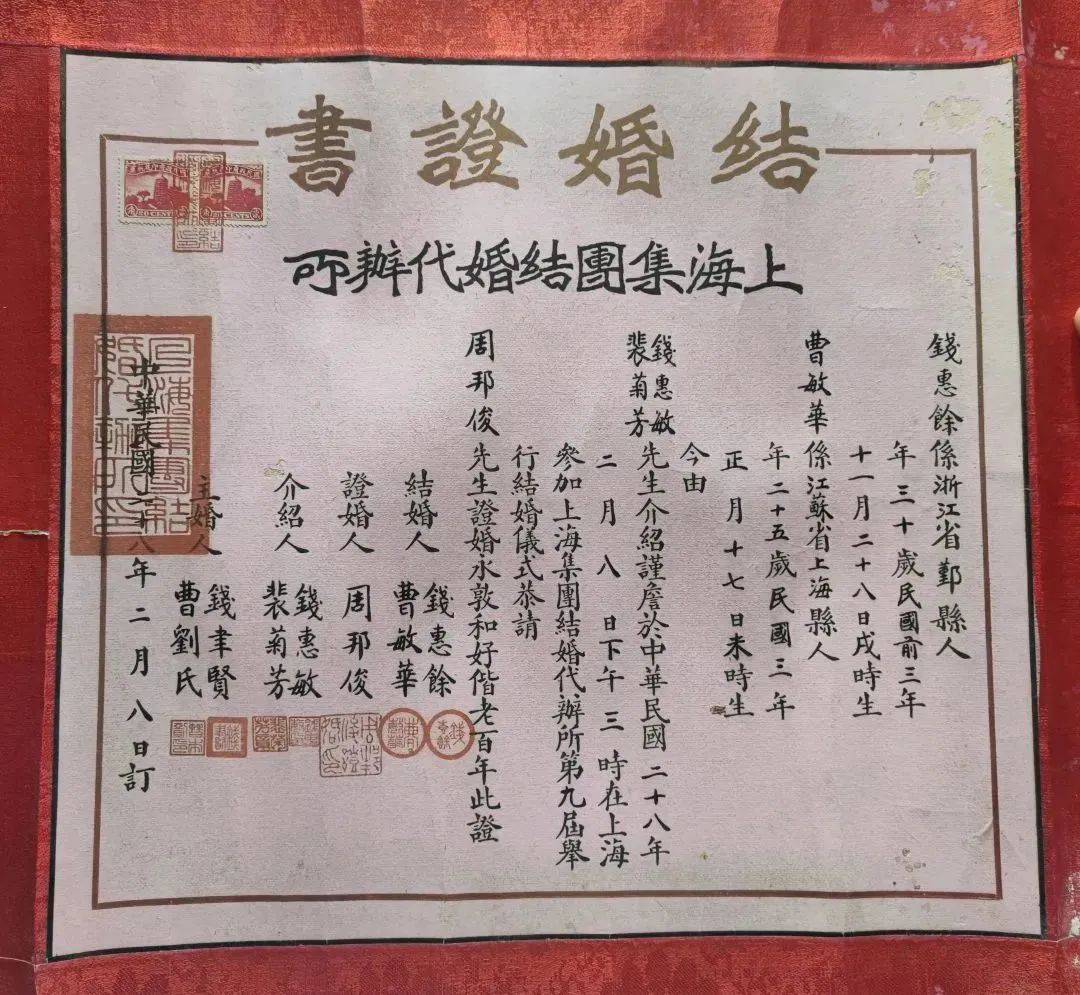 結婚證書
上海集團結婚代辦所
錢惠餘係浙江省鄞縣人
年三十歲民國前三年
十一月二十八日戌時生
曹敏華係江蘇省上海縣人
年二十五歲民國三年
正月十七日未時生
今由
錢惠敏
裴菊芳
先生介紹謹詹於中華民國二十八年
二月八日下午三時在上海
參加上海集團結婚代辦所第九屆舉
行結婚儀式恭請
周邦俊先生證婚永敦和好偕老百年此證
結婚人
錢惠餘
曹敏華
證婚人
周邦俊
介紹人
錢惠敏
裴菊芳
主婚人
錢聿賢
曹劉氏
中華民國二十八年二月八日訂
上海集團結婚代辦所印
20 CENTS